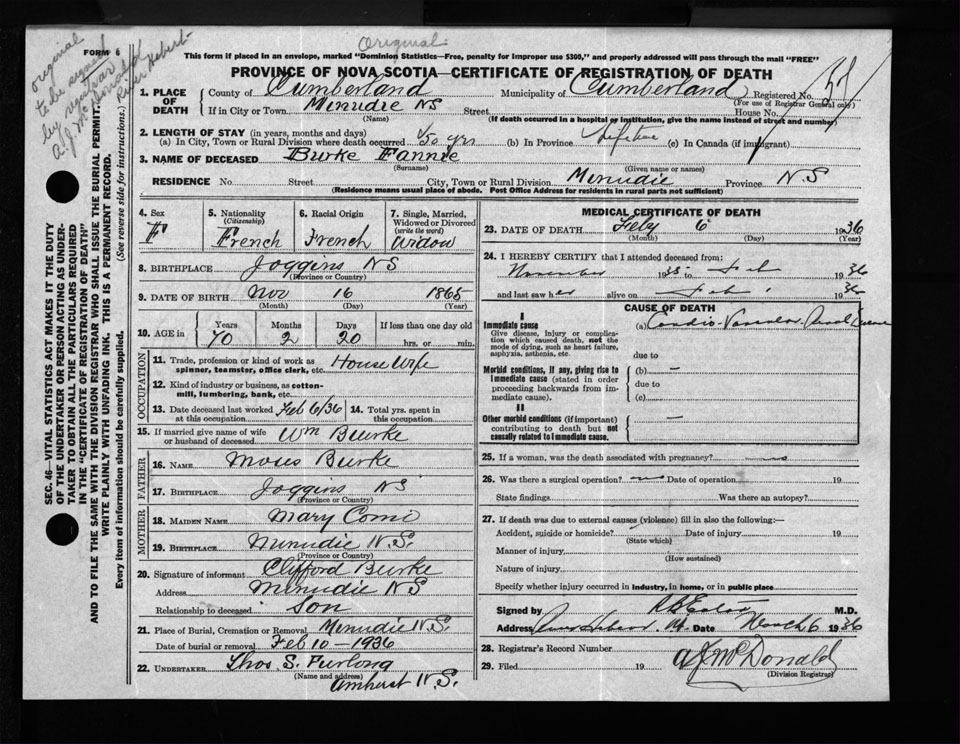 Original
original
to be signed
by
A. J. McDonald
River Hebert
FORM 6
This form if placed in an envelope, marked "Dominion Statistics—Free, penalty for improper use $300," and properly addressed will pass through the mail "FREE"
PROVINCE OF NOVA SCOTIA—CERTIFICATE OF REGISTRATION OF DEATH
1. PLACE OF DEATH
County of Cumberland Municipality of Cumberland Registered No.
(For use of Registrar General only)
If in City or Town Minudie NS Street House No.
(Name) (If death occurred in a hospital or institution, give the name instead of street and number)
2. LENGTH OF STAY (in years, months and days)
(a) In City, Town or Rural Division where death occurred 50 yrs (b) In Province lifetime (c) In Canada (if immigrant)
3. NAME OF DECEASED Burke Fannie
(Surname) (Given name or names)
RESIDENCE No. Street City, Town or Rural Division Minudie Province N S
(Residence means usual place of abode. Post Office Address for residents in rural parts not sufficient)
SEC. 46—VITAL STATISTICS ACT MAKES IT THE DUTY
OF THE UNDERTAKER OR PERSON ACTING AS UNDER-
TAKER TO OBTAIN ALL THE PARTICULARS REQUIRED
IN THE "CERTIFICATE OF REGISTRATION OF DEATH"
AND TO FILE THE SAME WITH THE DIVISION REGISTRAR WHO SHALL ISSUE THE BURIAL PERMIT.
WRITE PLAINLY WITH UNFADING INK. THIS IS A PERMANENT RECORD.
Every item of information should be carefully supplied. (See reverse side for instructions.)
4. Sex F
5. Nationality (Citizenship) French
6. Racial Origin French
7. Single, Married, Widowed or Divorced (write the word) Widow
8. BIRTHPLACE Joggins NS
(Province or Country)
9. DATE OF BIRTH Nov 16 1865
(Month) (Day) (Year)
10. AGE in Years 70 Months 2 Days 20 If less than one day old
hrs. or min.
OCCUPATION
11. Trade, profession or kind of work as spinner, teamster, office clerk, etc. House Wife
12. Kind of industry or business, as cotton-mill, lumbering, bank, etc.
13. Date deceased last worked at this occupation Feb 6/36 14. Total yrs. spent in this occupation
15. If married give name of wife or husband of deceased Wm Buurke
FATHER
16. NAME Moses Burke
17. BIRTHPLACE Joggins NS
(Province or Country)
MOTHER
18. MAIDEN NAME Mary
19. BIRTHPLACE Minudie N.S.
(Province or Country)
20. Signature of informant Clifford Buurke
Address Minudie NS
Relationship to deceased Son
21. Place of Burial, Cremation or Removal Minudie N.S.
Date of burial or removal Feb 10—1936
22. UNDERTAKER Thos S. Furlong
(Name and address)
Amherst N.S.
MEDICAL CERTIFICATE OF DEATH
23. DATE OF DEATH Feby 6 1936
(Month) (Day) (Year)
24. I HEREBY CERTIFY that I attended deceased from:
November 1935 to Feb 1936
and last saw her alive on Feb 1936
CAUSE OF DEATH
I
Immediate cause
Give disease, injury or complication which caused death, not the mode of dying, such as heart failure, asphyxia, asthenia, etc.
(a) Cardio-Vascular Renal Disease
due to
Morbid conditions, if any, giving rise to immediate cause (stated in order proceeding backwards from immediate cause)
(b) —
due to
(c)
II
Other morbid conditions (if important) contributing to death but not causally related to immediate cause.
—
25. If a woman, was the death associated with pregnancy? no
26. Was there a surgical operation? no Date of operation 19
State findings Was there an autopsy?
27. If death was due to external causes (violence) fill in also the following:—
Accident, suicide or homicide? Date of injury 19
(State which)
Manner of injury
(How sustained)
Nature of injury
Specify whether injury occurred in industry, in home, or in public place
Signed by M.D.
Address Date March 6 1936
28. Registrar's Record Number
29. Filed 19 A J McDonald
(Division Registrar)